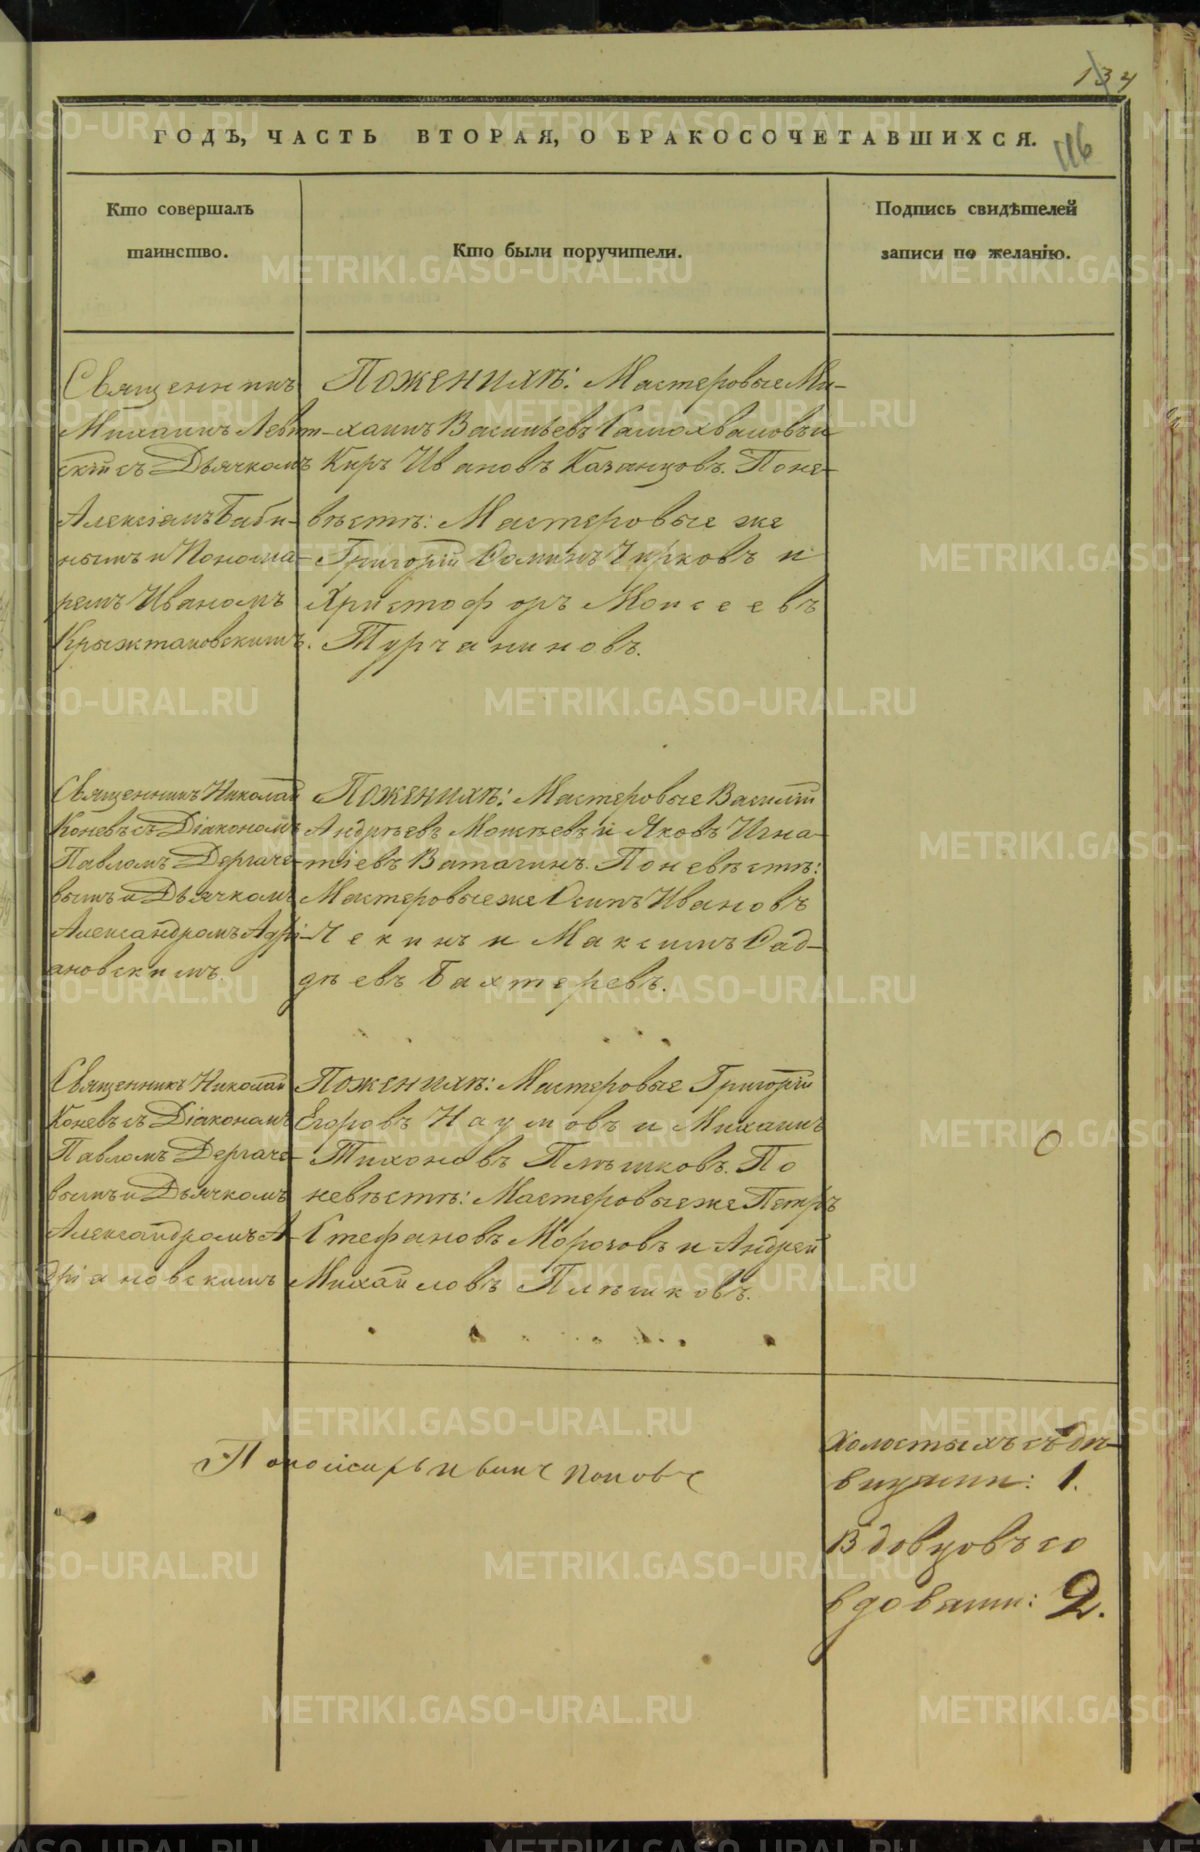 134
ГОДЪ, ЧАСТЬ ВТОРАЯ, О БРАКОСОЧЕТАВШИХСЯ.
116
Кто совершалъ
таинство.
Кто были поручители.
Подпись свидѣтелей
записи по желанію.
Священникъ
Михаилъ Левит-
скій съ Дьячкомъ
Алексіемъ Баби-
нымъ и Понома-
ремъ Иваномъ
Крыжтановскимъ.
Поженихѣ: Мастеровые Ми-
хаилъ Васильевъ Самохваловъ и
Киръ Ивановъ Казанцовъ. Поне-
вѣстѣ: Мастеровые же
Григорій Фоминъ Чирковъ и
Христофоръ Моисеевъ
Турчаниновъ.
Священникъ Николай
Коневъ съ Діакономъ
Павломъ Дергаче-
вымъ и Дьячкомъ
Александромъ Адрі-
ановскимъ.
Поженихѣ: Мастеровые Василій
Андрѣевъ Мокѣевъ и Яковъ Игна-
тіевъ Ватагинъ. Поневѣстѣ:
Мастеровые же Осипъ Ивановъ
Чекинъ и Максимъ Фад-
дѣевъ Бахтеревъ.
Священникъ Николай
Коневъ съ Діакономъ
Павломъ Дергаче-
вымъ и Дьячкомъ
Александромъ А-
дріановскимъ
Поженихѣ: Мастеровые Григорій
Егоровъ Наумовъ и Михаилъ
Тихоновъ Плѣшковъ. По
невѣстѣ: Мастеровые же Петръ
Стефановъ Морозовъ и Андрей
Михайловъ Плѣшковъ.
Холостыхъ съ дѣ-
вицами: 1.
Вдовцовъ со
вдовами: 2.
Попова
METRIKI.GASO-URAL.RU